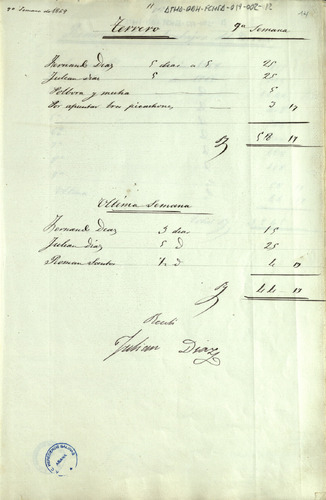 9ª Semana de 1869
11
ATHA-DAH-FCHSA-019-002-12
14
Terrero
9ª Semana
Fernando Diaz 5 dias a 5 25
Julian diaz 5 25
Polbora y mecha 5
Por apuntar tres picachones 3 17
R 58 17
Ultima Semana
Fernando Diaz 3 dias 15
Julian Diaz 5 d 25
Roman Santos ½ d 4 17
R 44 17
Recibi
Julian Diaz